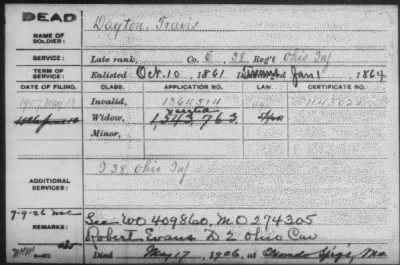 DEAD
NAME OF SOLDIER:
Dayton, Travis
SERVICE:
Late rank, Co. E, 38 Reg't Ohio Inf
TERM OF SERVICE:
Enlisted Oct. 10, 1861 Jan 1, 1864
DATE OF FILING. CLASS. APPLICATION NO. LAW. CERTIFICATE NO.
1907 May 17 Invalid, 1364514
Widow, 1,343,763
Minor,
ADDITIONAL SERVICES:
I 38 Ohio Inf
7-9-26
REMARKS:
See WO 409860, MO 274305
Robert Evans D 2 Ohio Cav
Died May 17, 1906, at Mo